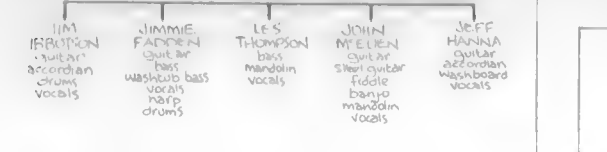 JIM
IBBOTSON
guitar
accordian
drums
vocals
JIMMIE
FADDEN
guitar
bass
washtub bass
vocals
harp
drums
LES
THOMPSON
bass
mandolin
vocals
JOHN
McEUEN
guitar
steel guitar
fiddle
banjo
mandolin
vocals
JEFF
HANNA
guitar
accordian
washboard
vocals